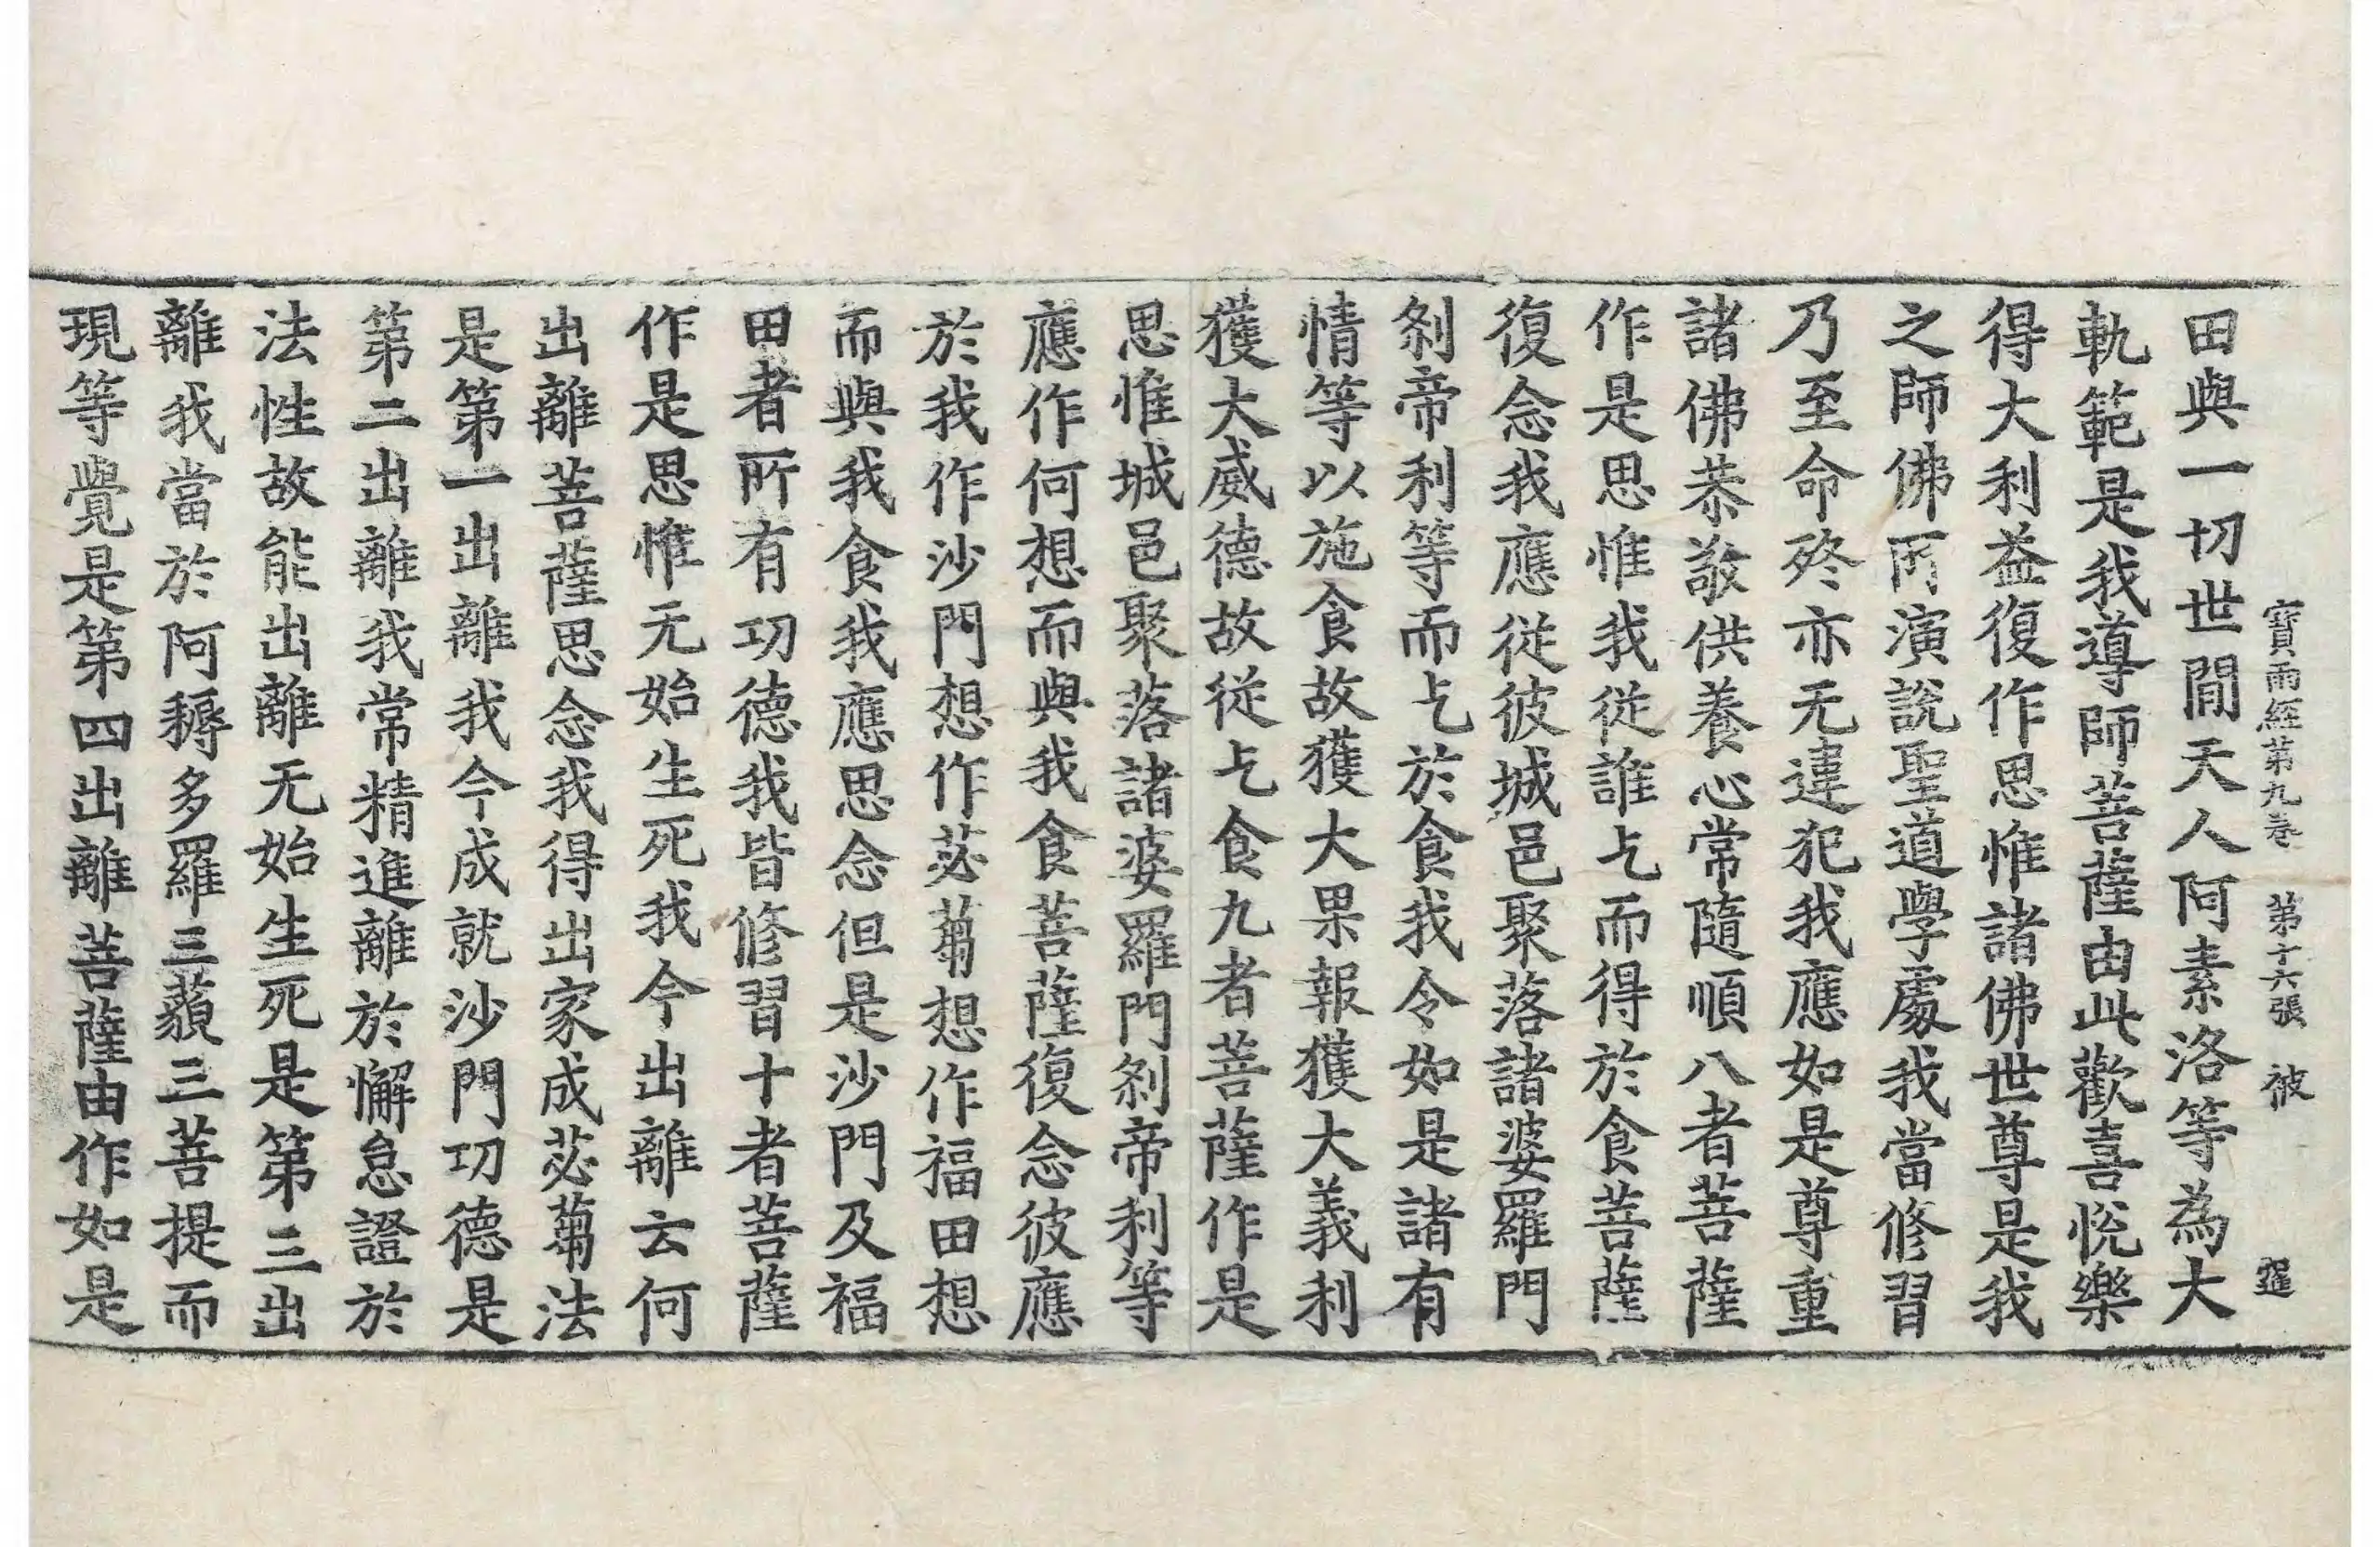 寶雨經第九卷 第十六張 被
田與一切世間天人阿素洛等為大
軌範是我導師菩薩由此歡喜悅樂
得大利益復作思惟諸佛世尊是我
之師佛所演說聖道學處我當修習
乃至命終亦无違犯我應如是尊重
諸佛恭敬供養心常隨順八者菩薩
作是思惟我從誰乞而得於食菩薩
復念我應從彼城邑聚落諸婆羅門
剎帝利等而乞於食我令如是諸有
情等以施食故獲大果報獲大義利
獲大威德故從乞食九者菩薩作是
思惟城邑聚落諸婆羅門剎帝利等
應作何想而與我食菩薩復念彼應
於我作沙門想作苾蒭想作福田想
而與我食我應思念但是沙門及福
田者所有功德我皆修習十者菩薩
作是思惟无始生死我今出離云何
出離菩薩思念我得出家成苾蒭法
是第一出離我今成就沙門功德是
第二出離我常精進離於懈怠證於
法性故能出離无始生死是第三出
離我當於阿耨多羅三藐三菩提而
現等覺是第四出離菩薩由作如是